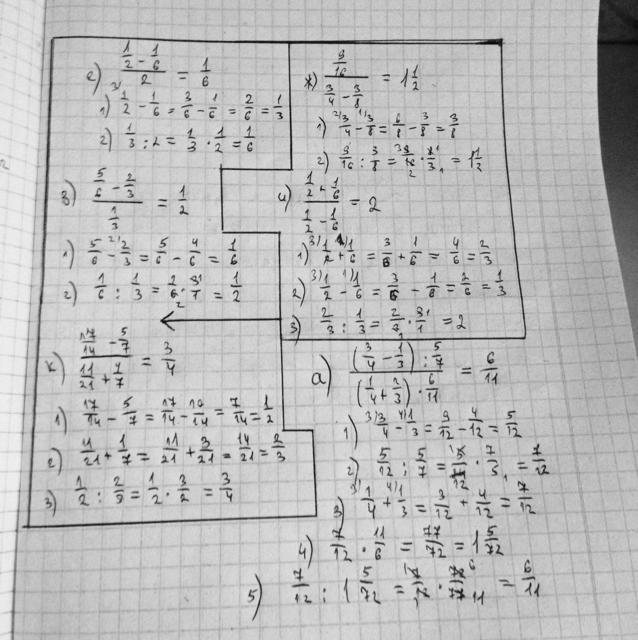 е) (1/2 - 1/6)/2 = 1/6
1) 3/ 1/2 - 1/6 = 3/6 - 1/6 = 2/6 = 1/3
2) 1/3 : 2 = 1/3 · 1/2 = 1/6
ж) (9/16)/(3/4 - 3/8) = 1 1/2
1) 2/ 3/4 - 1/ 3/8 = 6/8 - 3/8 = 3/8
2) 9/16 : 3/8 = 9/16 · 8/3 = 1 1/2
з) (5/6 - 2/3)/(1/3) = 1/2
1) 5/6 - 2/ 2/3 = 5/6 - 4/6 = 1/6
2) 1/6 : 1/3 = 1/6 · 3/1 = 1/2
и) (1/2 + 1/6)/(1/2 - 1/6) = 2
1) 3/ 1/2 + 1/ 1/6 = 3/6 + 1/6 = 4/6 = 2/3
2) 3/ 1/2 - 1/ 1/6 = 3/6 - 1/6 = 2/6 = 1/3
3) 2/3 : 1/3 = 2/3 · 3/1 = 2
к) (17/14 - 5/7)/(11/21 + 1/7) = 3/4
1) 17/14 - 5/7 = 17/14 - 10/14 = 7/14 = 1/2
2) 11/21 + 1/7 = 11/21 + 3/21 = 14/21 = 2/3
3) 1/2 : 2/3 = 1/2 · 3/2 = 3/4
а) ((3/4 - 1/3) : 5/7)/((1/4 + 1/3) · 11/6) = 6/11
1) 3/ 3/4 - 4/ 1/3 = 9/12 - 4/12 = 5/12
2) 5/12 : 5/7 = 5/12 · 7/5 = 7/12
3) 3/ 1/4 + 4/ 1/3 = 3/12 + 4/12 = 7/12
4) 7/12 · 11/6 = 77/72 = 1 5/72
5) 7/12 : 1 5/72 = 7/12 · 72/77 = 6/11